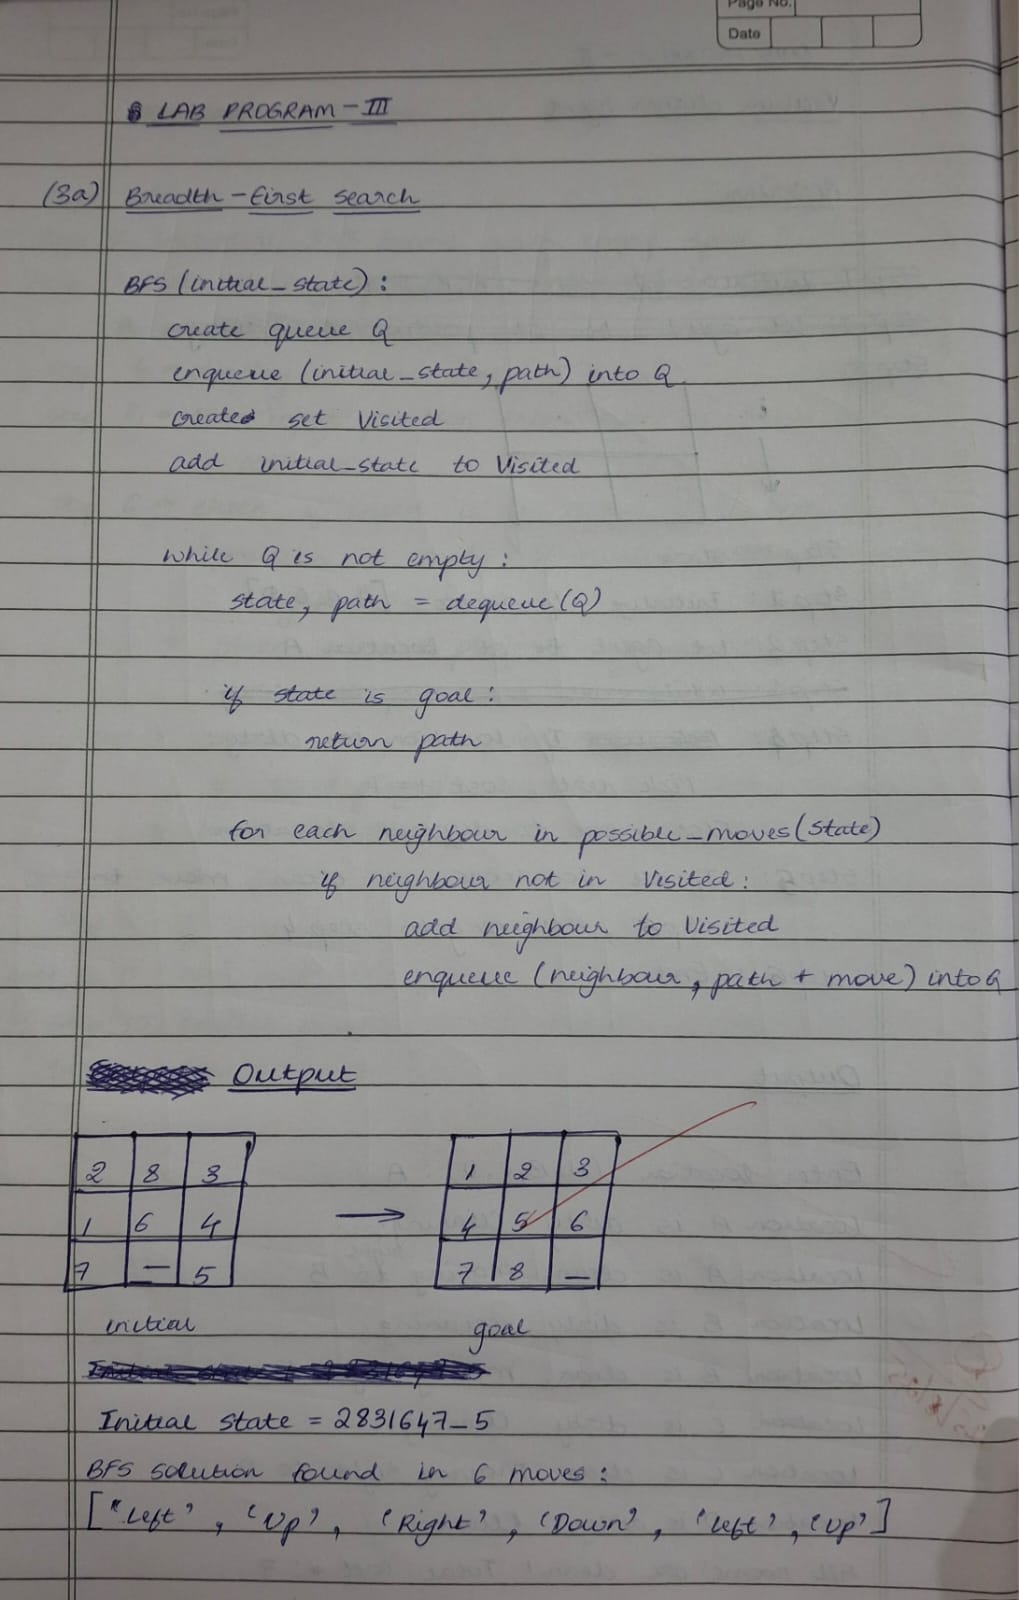 Page No.
Date
LAB PROGRAM - III
(3a) Breadth - First Search
BFS (initial_state) :
create queue Q
enqueue (initial_state, path) into Q
create set Visited
add initial_state to Visited
while Q is not empty :
state, path = dequeue (Q)
if state is goal :
return path
for each neighbour in possible_moves (state)
if neighbour not in Visited :
add neighbour to Visited
enqueue (neighbour, path + move) into Q
Output
2 8 3
1 6 4
7 — 5
→
1 2 3
4 5 6
7 8 —
initial
goal
Initial state = 2831647_5
BFS solution found in 6 moves :
["Left', 'Up', 'Right', 'Down', 'Left', 'Up']